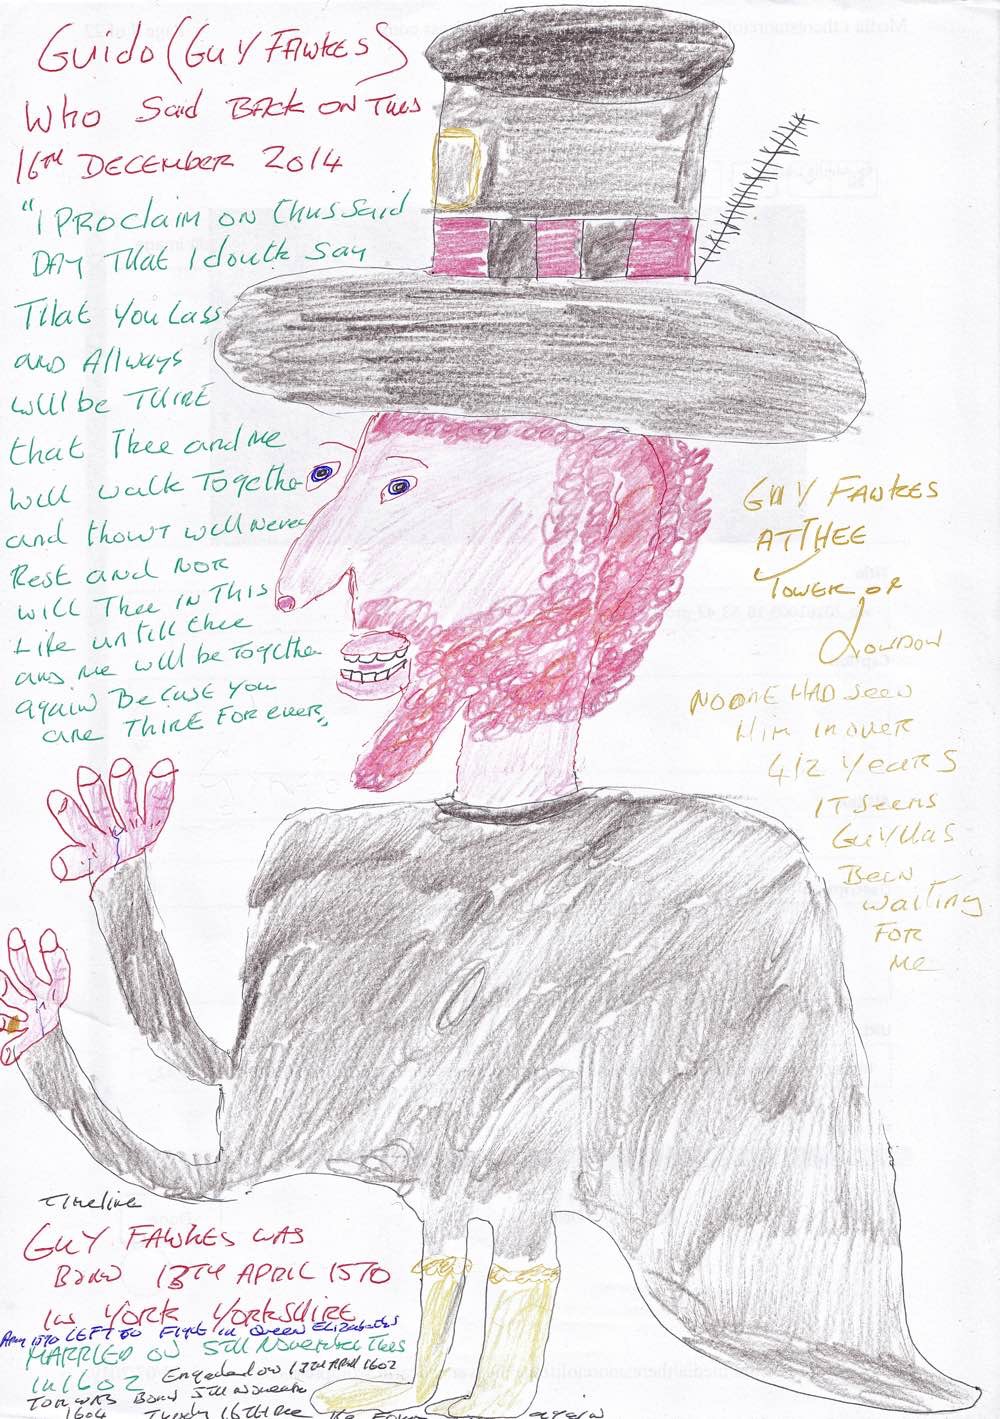 Guido (Guy Fawkes)
Who Said Back on This
16th December 2014
"I Proclaim on Thus Said
Day That I douth Say
That You Lass
and Allways
will be Thine
that Thee and me
will walk Together
and thowt will Never
Rest and Nor
will Thee in This
Life untill thee
and me will be Together
again Because you
are Thine For ever"
Guy Fawkes
At Thee
Tower of
London
No one Had seen
Him in over
412 years
it seems
Guy Has
Been
waiting
For
Me
Timeline
Guy Fawkes was
Born 13th April 1570
in York Yorkshire
1590 Left to Fight in Queen Elizabeths
Married on 5th November This
in 1602 Engaded on 13th April 1602
Tom was Born 5th November
1604 Tuesday 16th
again